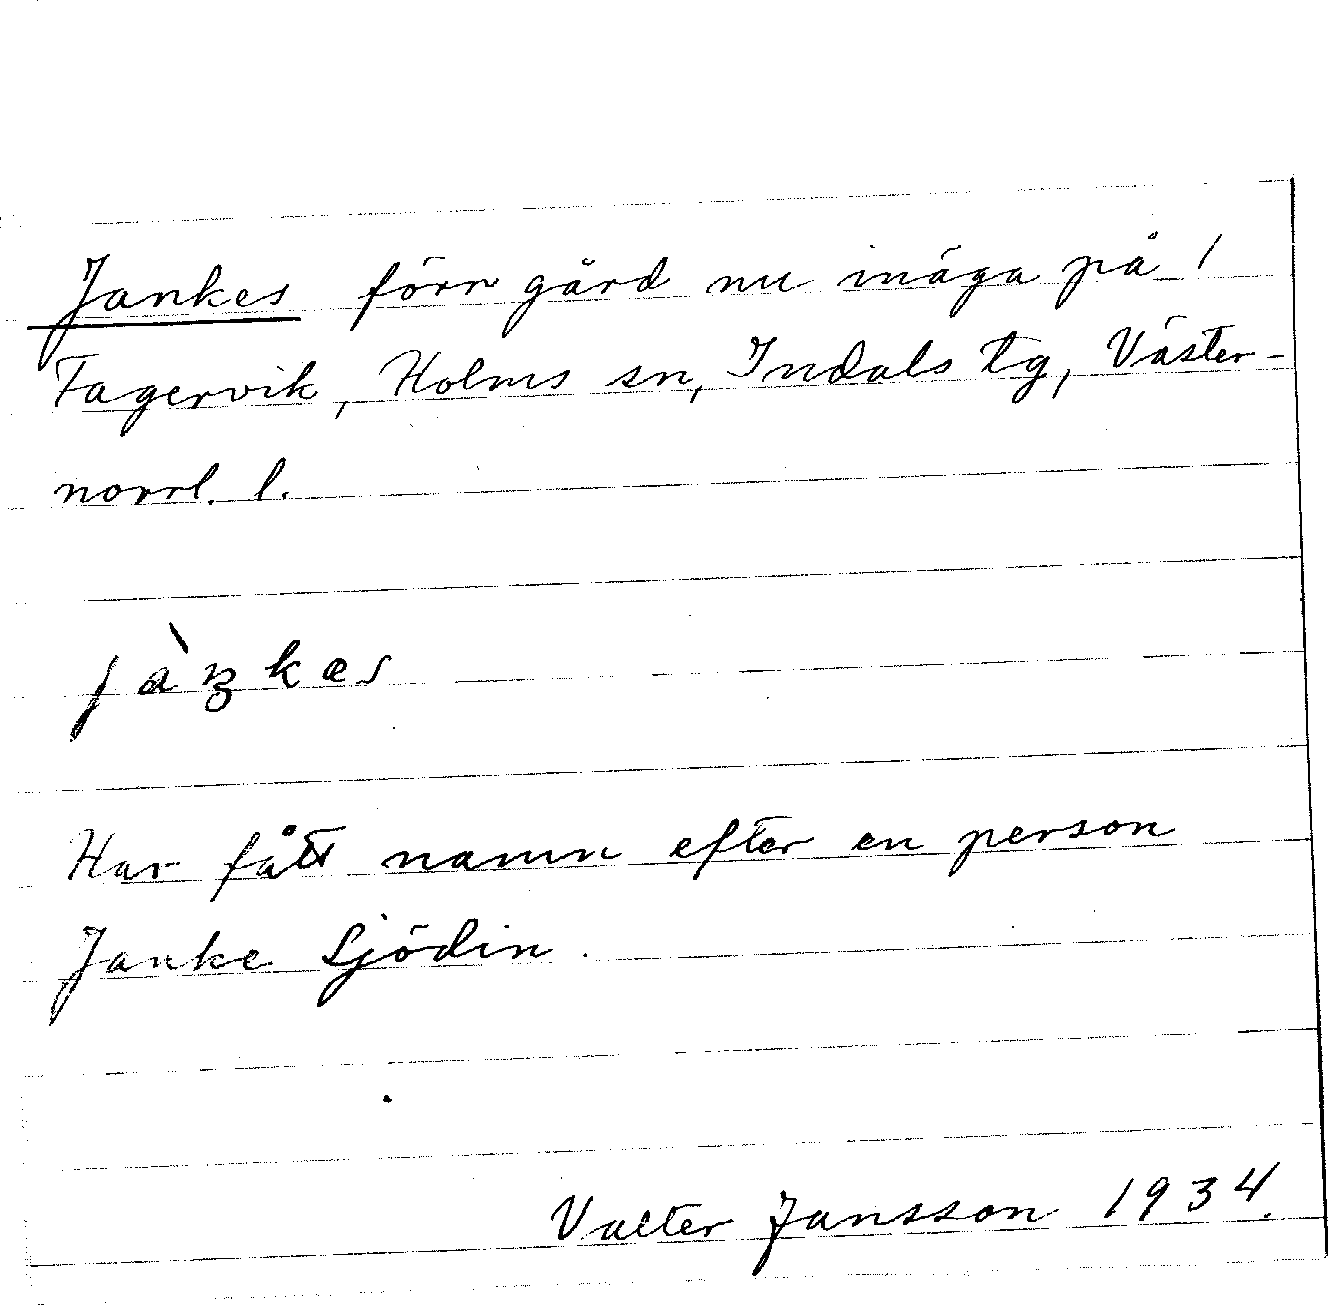 Jankes förr gård nu inäga på 1
Fagervik, Holms sn, Indals tg, Väster-
norrl. l.
jàŋkəs
Har fått namn efter en person
Janke Sjödin.
Valter Jansson 1934.